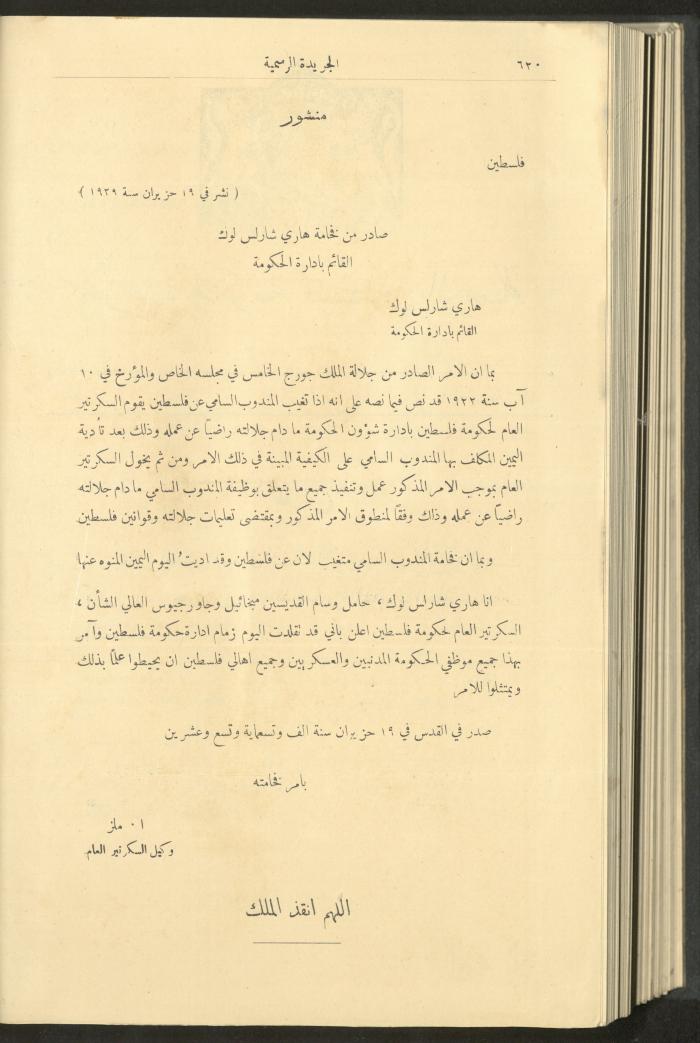 ٦٢٠
الجريدة الرسمية
منشور
فلسطين
( نشر في ١٩ حزيران سنة ١٩٢٩ )
صادر من فخامة هاري شارلس لوك
القائم بادارة الحكومة
هاري شارلس لوك
القائم بادارة الحكومة
بما ان الامر الصادر من جلالة الملك جورج الخامس في مجلسه الخاص والمؤرخ في ١٠
آب سنة ١٩٢٢ قد نص فيما نصه على انه اذا تغيب المندوب السامي عن فلسطين يقوم السكرتير
العام لحكومة فلسطين بادارة شؤون الحكومة ما دام جلالته راضياً عن عمله وذلك بعد تأدية
اليمين المكلف بها المندوب السامي على الكيفية المبينة في ذلك الامر ومن ثم يخول السكرتير
العام بموجب الامر المذكور عمل وتنفيذ جميع ما يتعلق بوظيفة المندوب السامي ما دام جلالته
راضياً عن عمله وذاك وفقاً لمنطوق الامر المذكور وبمقتضى تعليمات جلالته وقوانين فلسطين
وبما ان فخامة المندوب السامي متغيب لان عن فلسطين وقد اديتُ اليوم اليمين المنوه عنها
انا هاري شارلس لوك ، حامل وسام القديسين ميخائيل وجاورجيوس العالي الشأن ،
السكرتير العام لحكومة فلسطين اعلن باني قد تقلدت اليوم زمام ادارة حكومة فلسطين وآمر
بهذا جميع موظفي الحكومة المدنيين والعسكريين وجميع اهالي فلسطين ان يحيطوا علماً بذلك
ويمتثلوا للامر
صدر في القدس في ١٩ حزيران سنة الف وتسعماية وتسع وعشرين
بامر فخامته
ا ٠ ملز
وكيل السكرتير العام
اللهم انقذ الملك